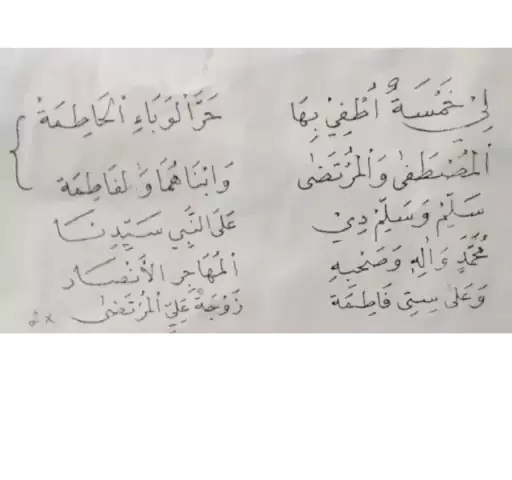 لِيْ خَمْسَةٌ أُطْفِيْ بِهَا حَرَّالْوَبَاءِ الْحَاطِمَةْ
اَلْمُصْطَفٰى وَالْمُرْتَضٰى وَابْنَاهُمَا وَالْفَاطِمَة
سَلِّمْ وَسَلِّمْ دِيْ عَلَى النَّبِي سَيِّدِنَا
مُحَمَّدٍ وَاٰلِهِ وَصَحْبِهِ اَلْمُهَاجِرِ الْأَنْصَار
وَعَلىٰ سِتِى فَاطِمَة زَوْجَةْ عَلِيِّ الْمُرْتَضٰى